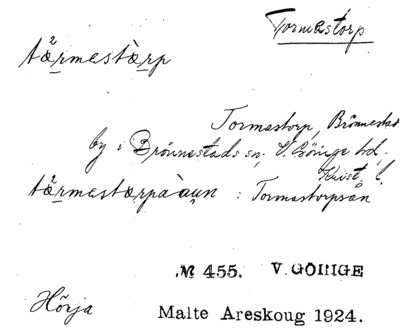 Tormestorp
tærmestàrp
Tormastorp, Brönnestad
by i Brönnestads sn, V. Göinge hd.
Krist. l.
tærmestærpàaun : Tormastorpsån
№ 455. V. GÖINGE
Hörja
Malte Areskoug 1924.